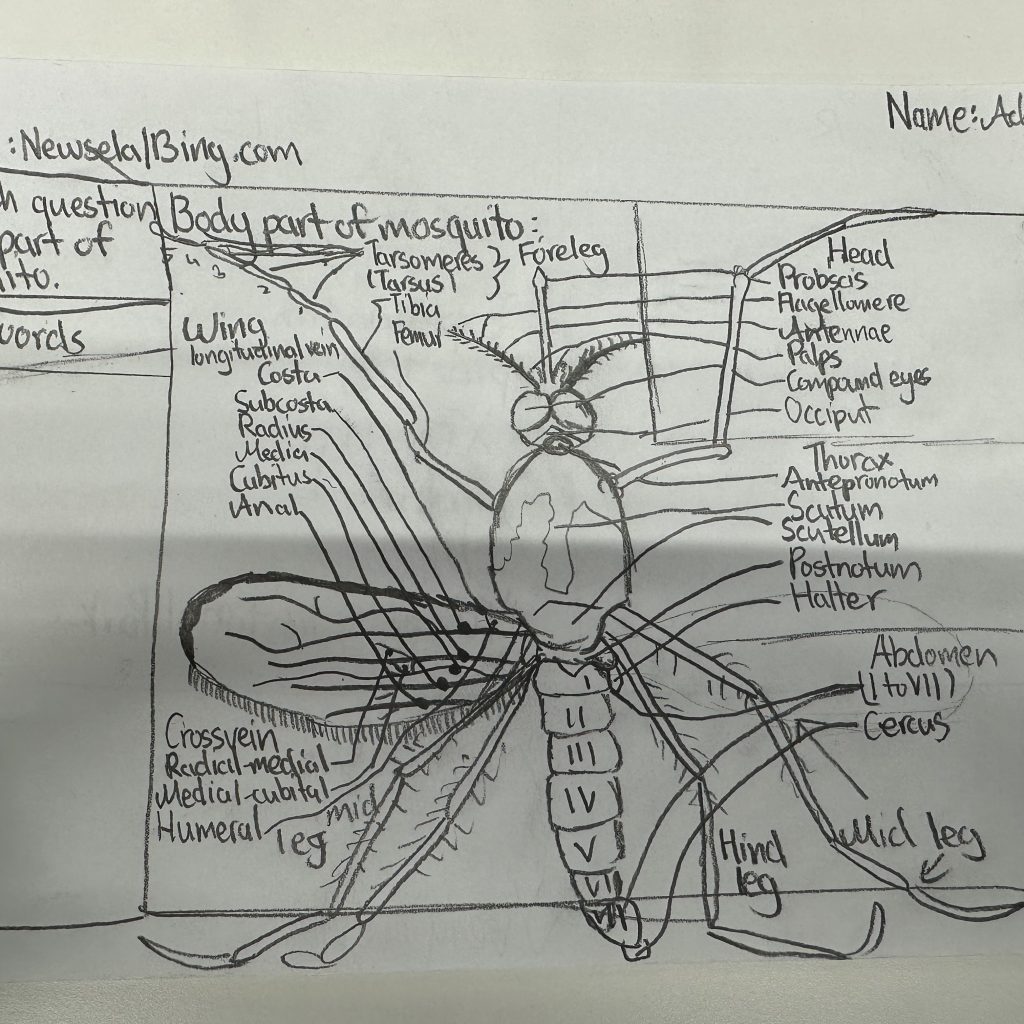 Name: Ad
: Newsela/Bing.com
h question
part of
ito.
words
Body part of mosquito:
Tarsomeres
(Tarsus)
Foreleg
Tibia
Femur
4
3
2
1
Wing
longitudinal vein
Costa
Subcosta
Radius
Media
Cubitus
Anal
Head
Probscis
Flagellomere
Antennae
Palps
Compound eyes
Occiput
Thorax
Antepronotum
Scutum
Scutellum
Postnotum
Halter
Abdomen
(I to VII)
Cercus
I
II
III
IV
V
VI
VII
Crossvein
Radial-medial
Medial-cubital
Humeral
mid
leg
Hind
leg
Mid leg